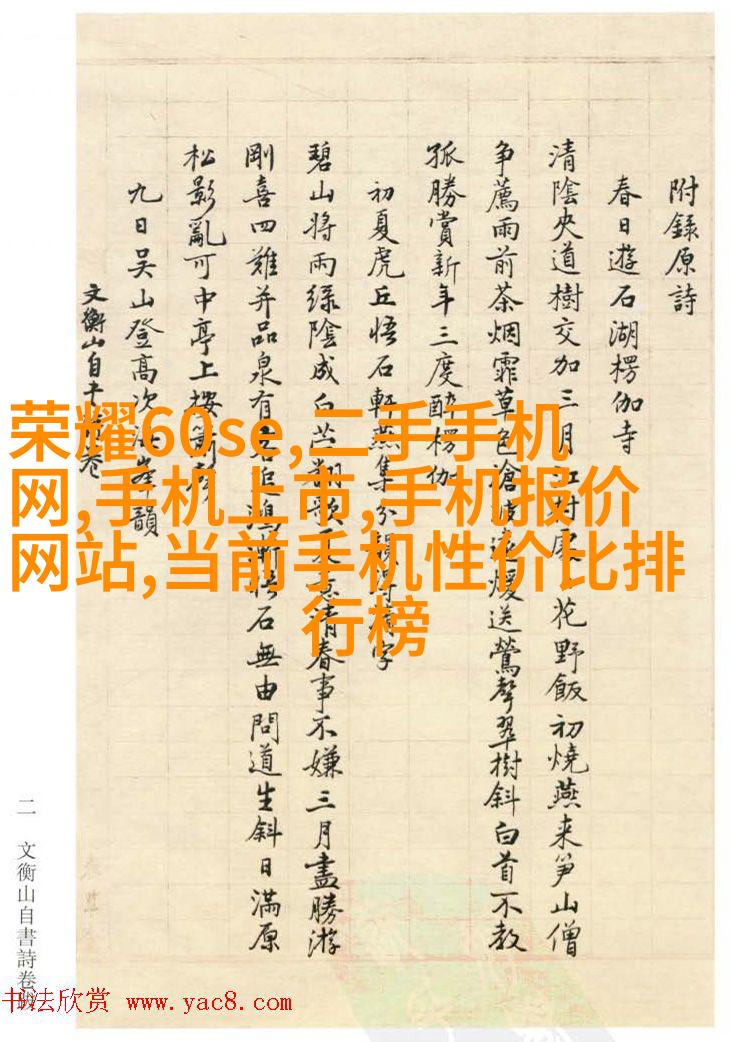 附錄原詩
春日遊石湖楞伽寺
清陰夾道樹交加三月江村展一花野飯初燒燕来笋山僧
争薦雨前茶烟霏草色滄波遠煖送鶯聲翠樹斜白首不教
孤勝賞新年三度醉楞伽
初夏虎丘悟石軒燕集分韻得清字
碧山將雨綠陰成白苎
青春事不嫌三月盡勝游
剛喜四難并品泉有
石無由問道生斜日滿原
松影亂可中亭上
九日吳山登高次
峰韻
文衡山自書詩卷
荣耀60se,二手手机
网,手机上市,手机报价
网站,当前手机性价比排
行榜
二 文衡山自書詩卷跋
书法欣赏 www.yac8.com